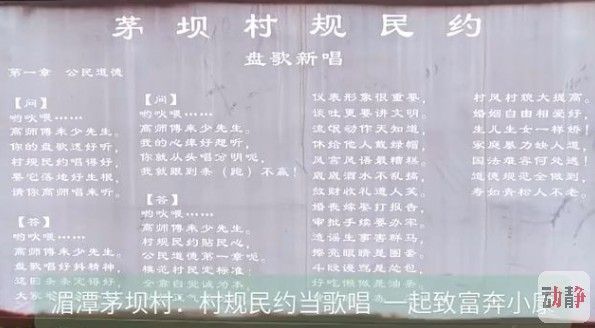 茅坝村规民约
盘歌新唱
第一章 公民道德
【问】
哟吙喂……
高师傅来少先生。
你的盘歌选好听,
村规民约唱得好,
要它落地好生根,
请你高师唱来听。
【答】
哟吙喂……
高师傅来少先生。
盘歌唱得好抖精神,
【问】
哟吙喂……
高师傅来少先生。
我的心痒好想听,
你就从头唱分明呢,
我就跟到条(跑)不赢!
【答】
哟吙喂……
高师傅来少先生。
村规民约贴民心,
公民道德第一章呃。
模范村民定标准,
仪表形象很重要,
谈吐更要讲文明。
流氓动作天知道,
休给他人戴绿帽,
风言风语最糟糕。
鹿鹿酒水不乱搞,
敛财收礼遭人笑。
婚丧嫁娶打报告,
审批手续要办牢。
造谣生事害群马,
擦亮眼睛是图表,
村风村貌大提高。
婚姻自由相爱好,
生儿生女一样骄!
家庭暴力缺人道,
国法难容何处逃!
道德规范全做到,
寿如青松人不老。
湄潭茅坝村:村规民约当歌唱 一起致富奔小康
动静